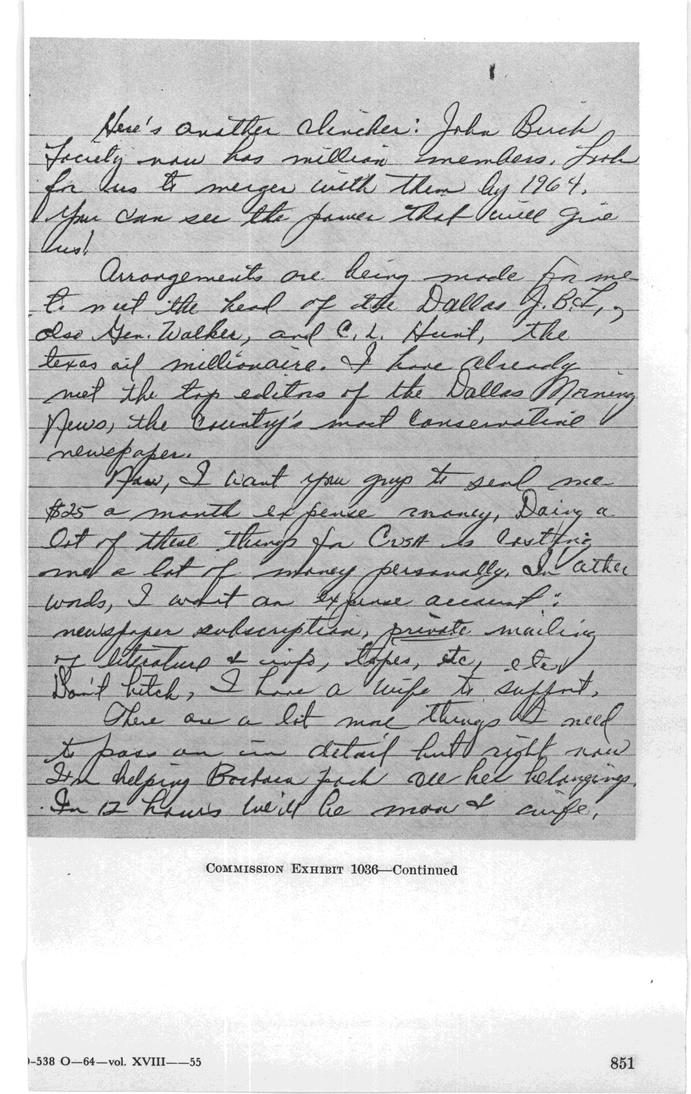 Here's another clincher: John Birch
Society now has million members. Look
for us to merger with them by 1964.
You can see the power that will give
us!
Arrangements are being made for me
to meet the head of the Dallas J.B.S.,
also Gen. Walker, and C. L. Hunt, the
texas oil millionaire. I have already
met the top editors of the Dallas Morning
News, the country's most conservative
newspaper.
Now, I want you guys to send me
$25 a month expense money. Doing a
lot of these things for CUSA is costing
me a lot of money personally. In other
words, I want an expense account:
newspaper subscription, private mailing
of literature & info, tapes, etc, etc.
Don't bitch, I have a wife to support.
There are a lot more things I need
to pass on in detail but right now
I'm helping Barbara pack all her belongings.
In 12 hours we'll be man & wife.
COMMISSION EXHIBIT 1036—Continued
-538 O—64—vol. XVIII——55
851